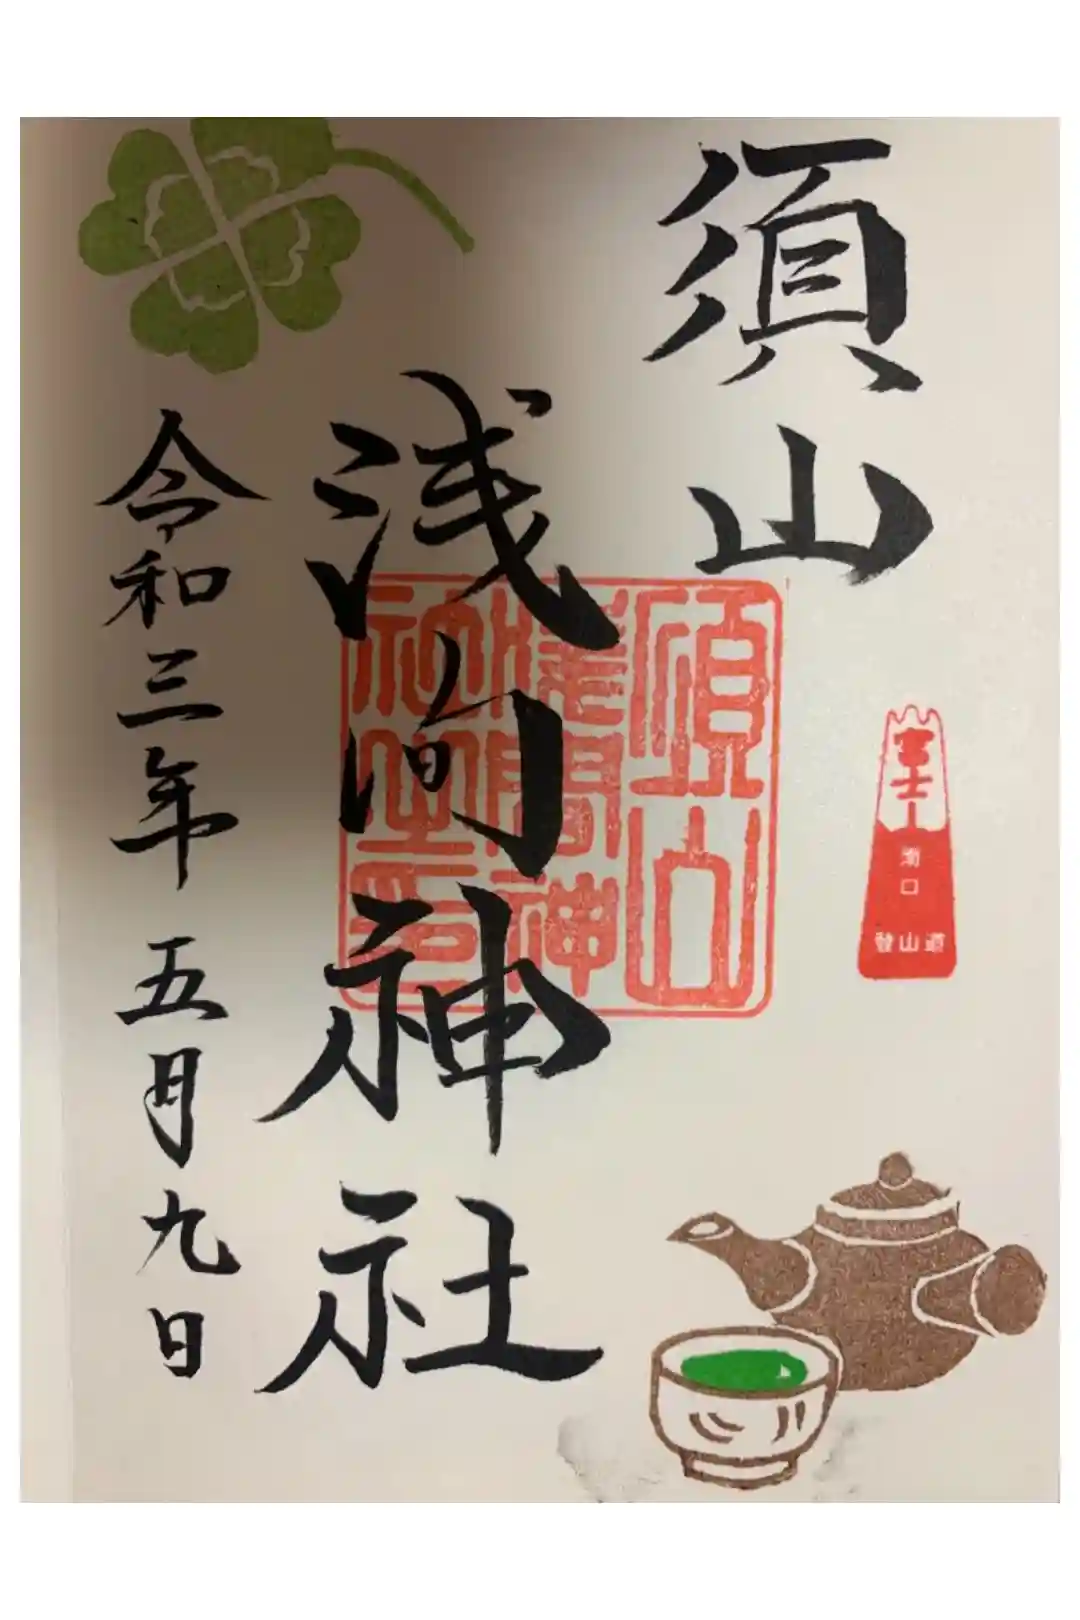 須山
浅间神社
令和三年五月九日
須山
浅間神
社之印
富士山
南口
登山道